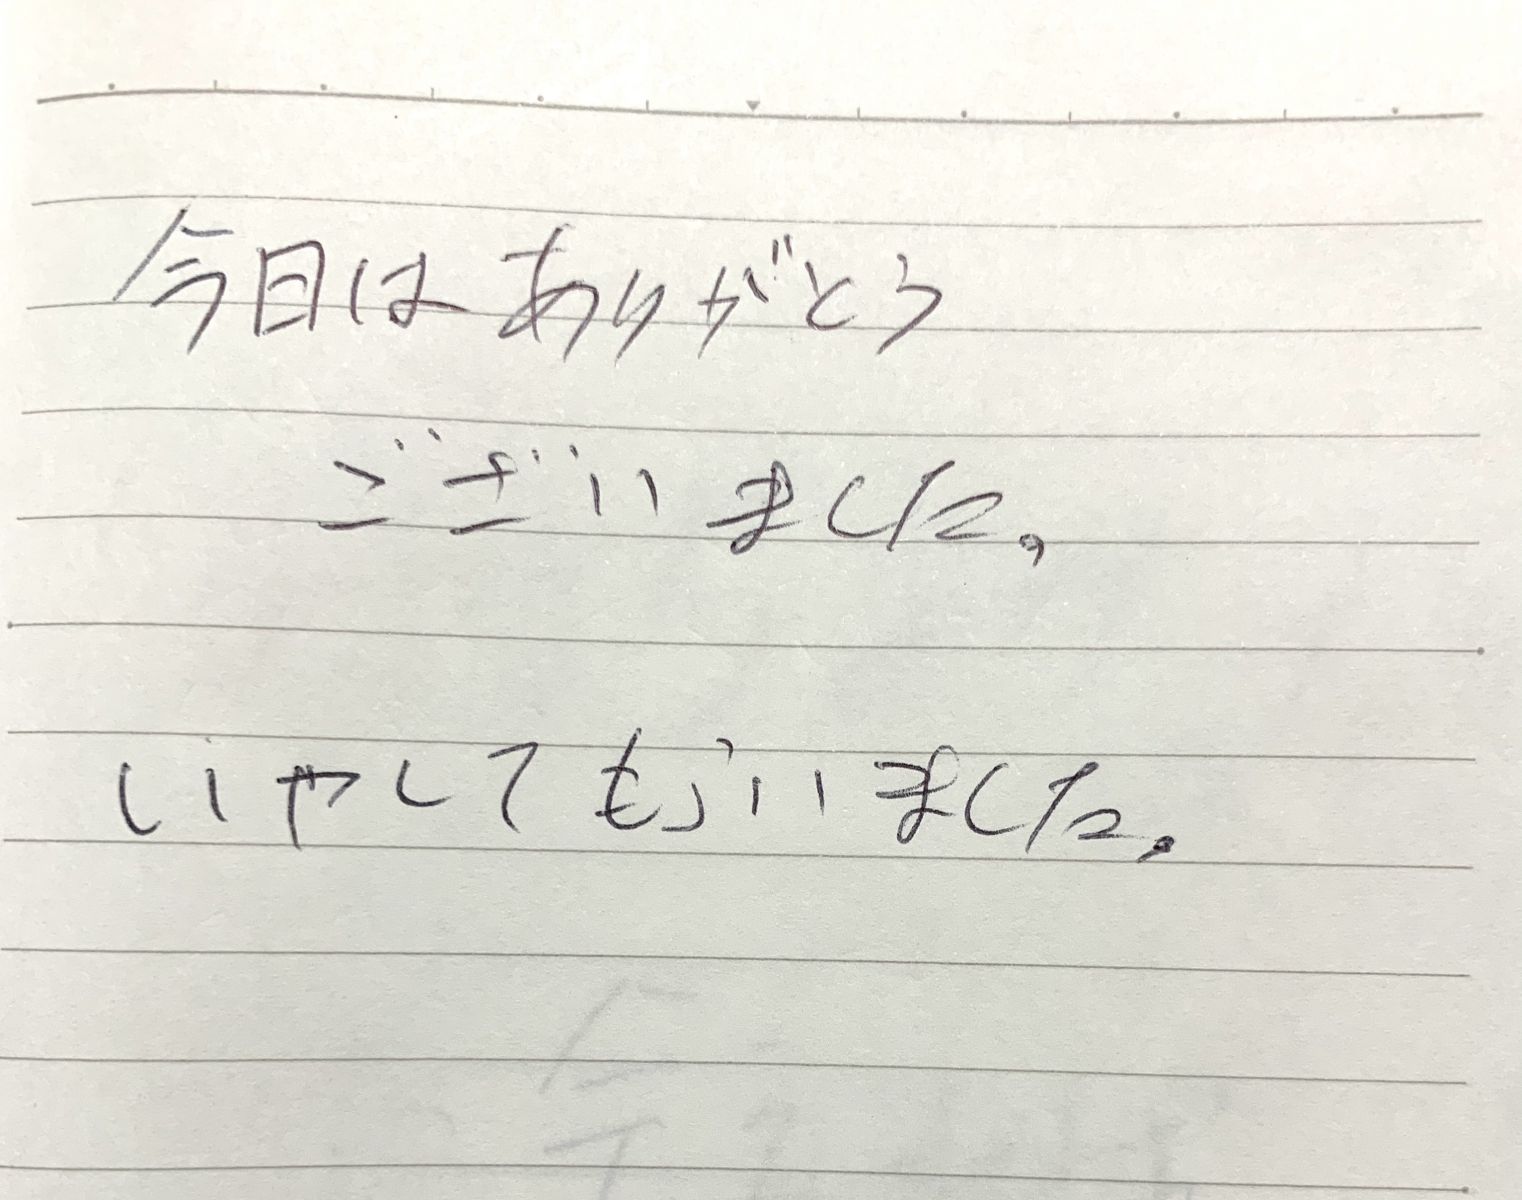 今日はありがとう
ございました。
いやしてもらいました。